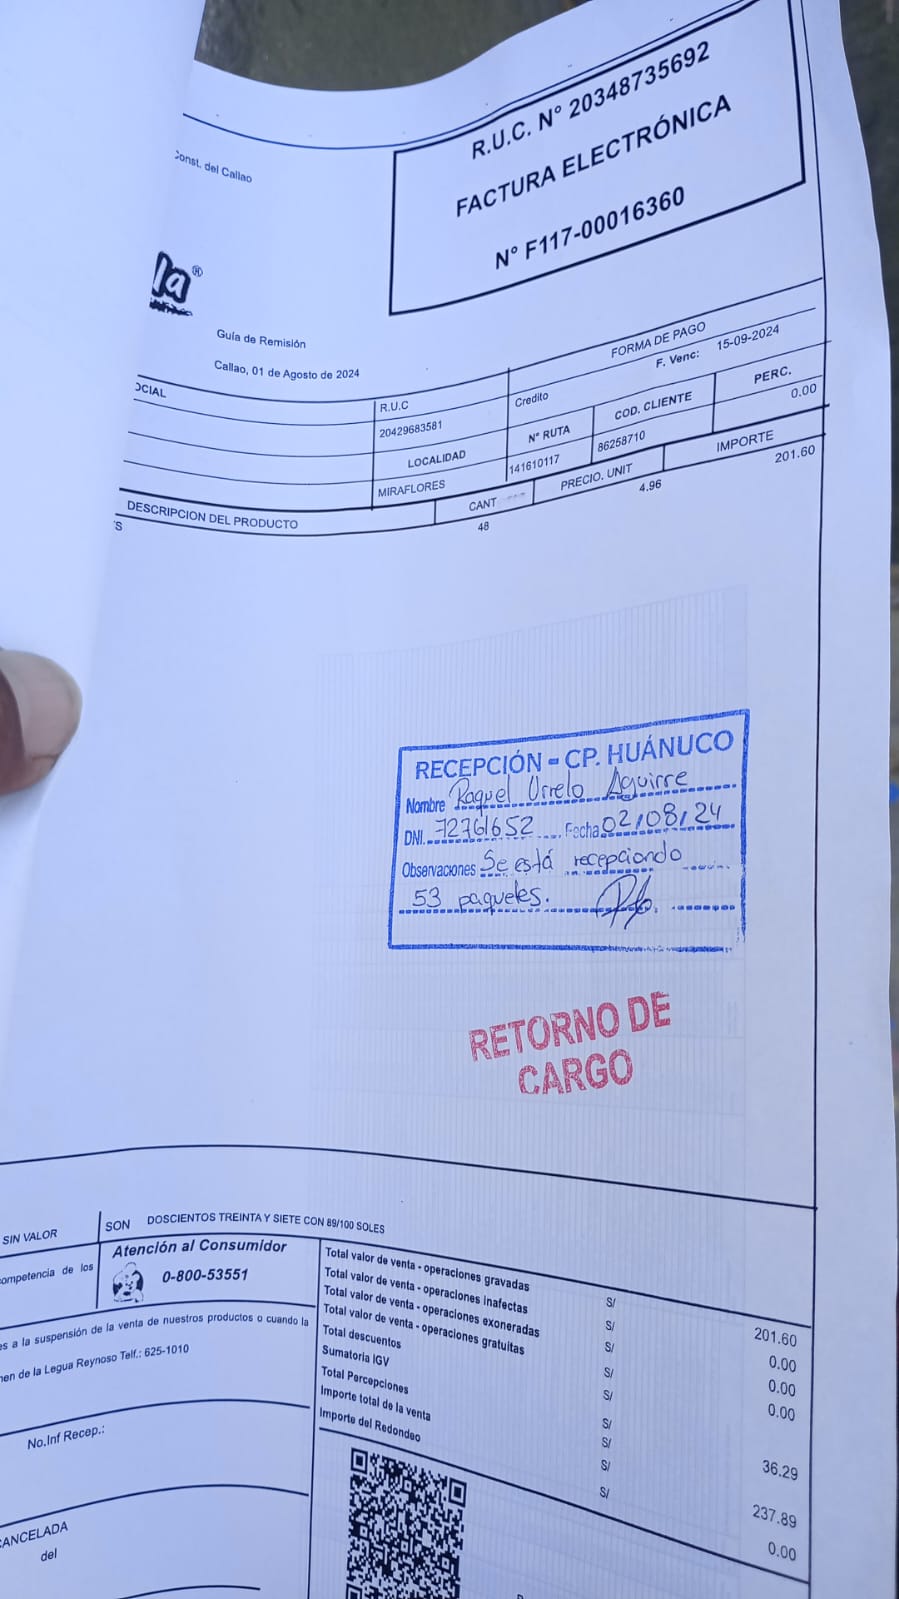 R.U.C. N° 20348735692
FACTURA ELECTRÓNICA
N° F117-00016360
Const. del Callao
la®
Guía de Remisión
Callao, 01 de Agosto de 2024
FORMA DE PAGO
F. Venc: 15-09-2024
OCIAL
R.U.C
Credito
20429683581
N° RUTA
COD. CLIENTE
PERC.
0.00
LOCALIDAD
141610117
86258710
MIRAFLORES
DESCRIPCION DEL PRODUCTO
CANT
PRECIO. UNIT
IMPORTE
'S
48
4.96
201.60
RECEPCIÓN - CP. HUÁNUCO
Nombre Raquel Urrelo Aguirre
DNI. 72761652 Fecha 02/08/24
Observaciones Se está recepciondo
53 paquetes.
RETORNO DE
CARGO
SIN VALOR
SON DOSCIENTOS TREINTA Y SIETE CON 89/100 SOLES
ompetencia de los
Atención al Consumidor
0-800-53551
es a la suspensión de la venta de nuestros productos o cuando la
men de la Legua Reynoso Telf.: 625-1010
No.Inf Recep.:
CANCELADA
del
Total valor de venta - operaciones gravadas S/ 201.60
Total valor de venta - operaciones inafectas S/ 0.00
Total valor de venta - operaciones exoneradas S/ 0.00
Total valor de venta - operaciones gratuitas S/ 0.00
Total descuentos S/
Sumatoria IGV S/ 36.29
Total Percepciones S/
Importe total de la venta S/ 237.89
Importe del Redondeo S/ 0.00